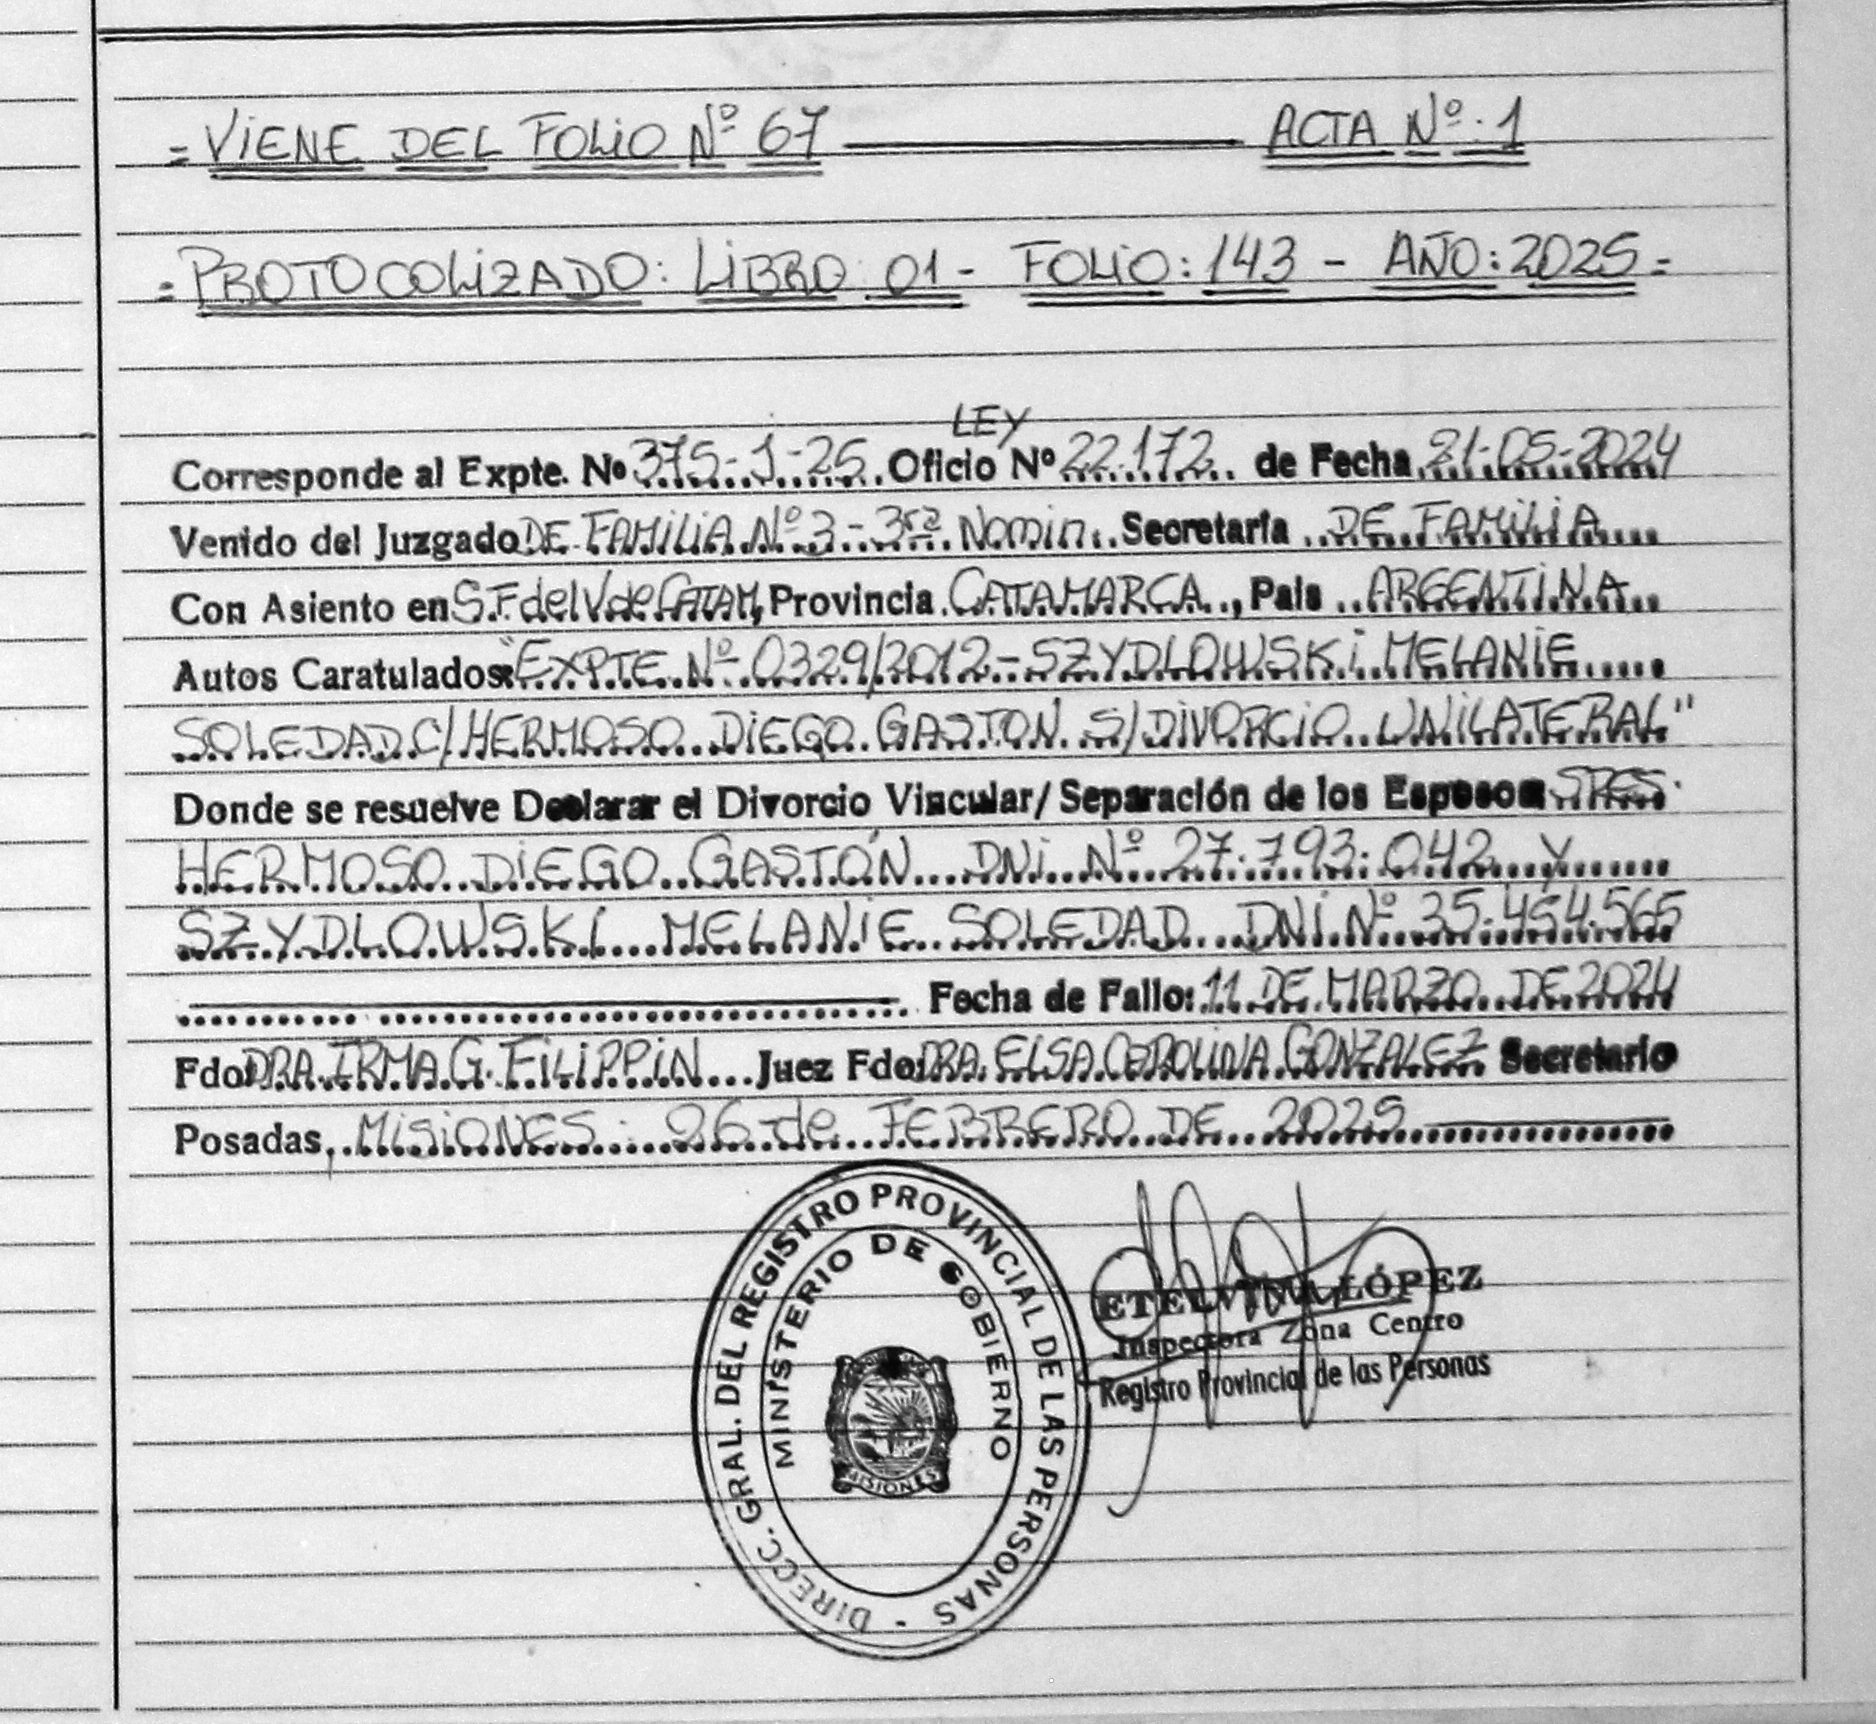 = VIENE DEL FOLIO Nº 67 ——— ACTA Nº: 1
= PROTOCOLIZADO: LIBRO: 01 - FOLIO: 143 - AÑO: 2025 =
LEY
Corresponde al Expte. Nº 375-1-25 Oficio Nº 22.172 de Fecha 21-05-2024
Venido del Juzgado DE FAMILIA Nº 3 - 3ra Nomin. Secretaría DE FAMILIA
Con Asiento en S.F. del V. de CATAM, Provincia CATAMARCA, País ARGENTINA
Autos Caratulados: "EXPTE. Nº 0329/2012 - SZYDLOWSKI MELANIE
SOLEDAD C/ HERMOSO DIEGO GASTON S/ DIVORCIO UNILATERAL"
Donde se resuelve Declarar el Divorcio Vincular/Separación de los Esposos SRES.
HERMOSO DIEGO GASTÓN DNI Nº 27.793.042 y
SZYDLOWSKI MELANIE SOLEDAD DNI Nº 35.454.565
Fecha de Fallo: 11 DE MARZO DE 2024
Fdo: DRA. IRMA G. FILIPPIN Juez Fdo: DRA. ELSA CAROLINA GONZALEZ Secretario
Posadas, MISIONES: 26 de FEBRERO DE 2025
DIRECC. GRAL. DEL REGISTRO PROVINCIAL DE LAS PERSONAS -
MINISTERIO DE GOBIERNO
MISIONES
LÓPEZ
Inspectora Zona Centro
Registro Provincial de las Personas